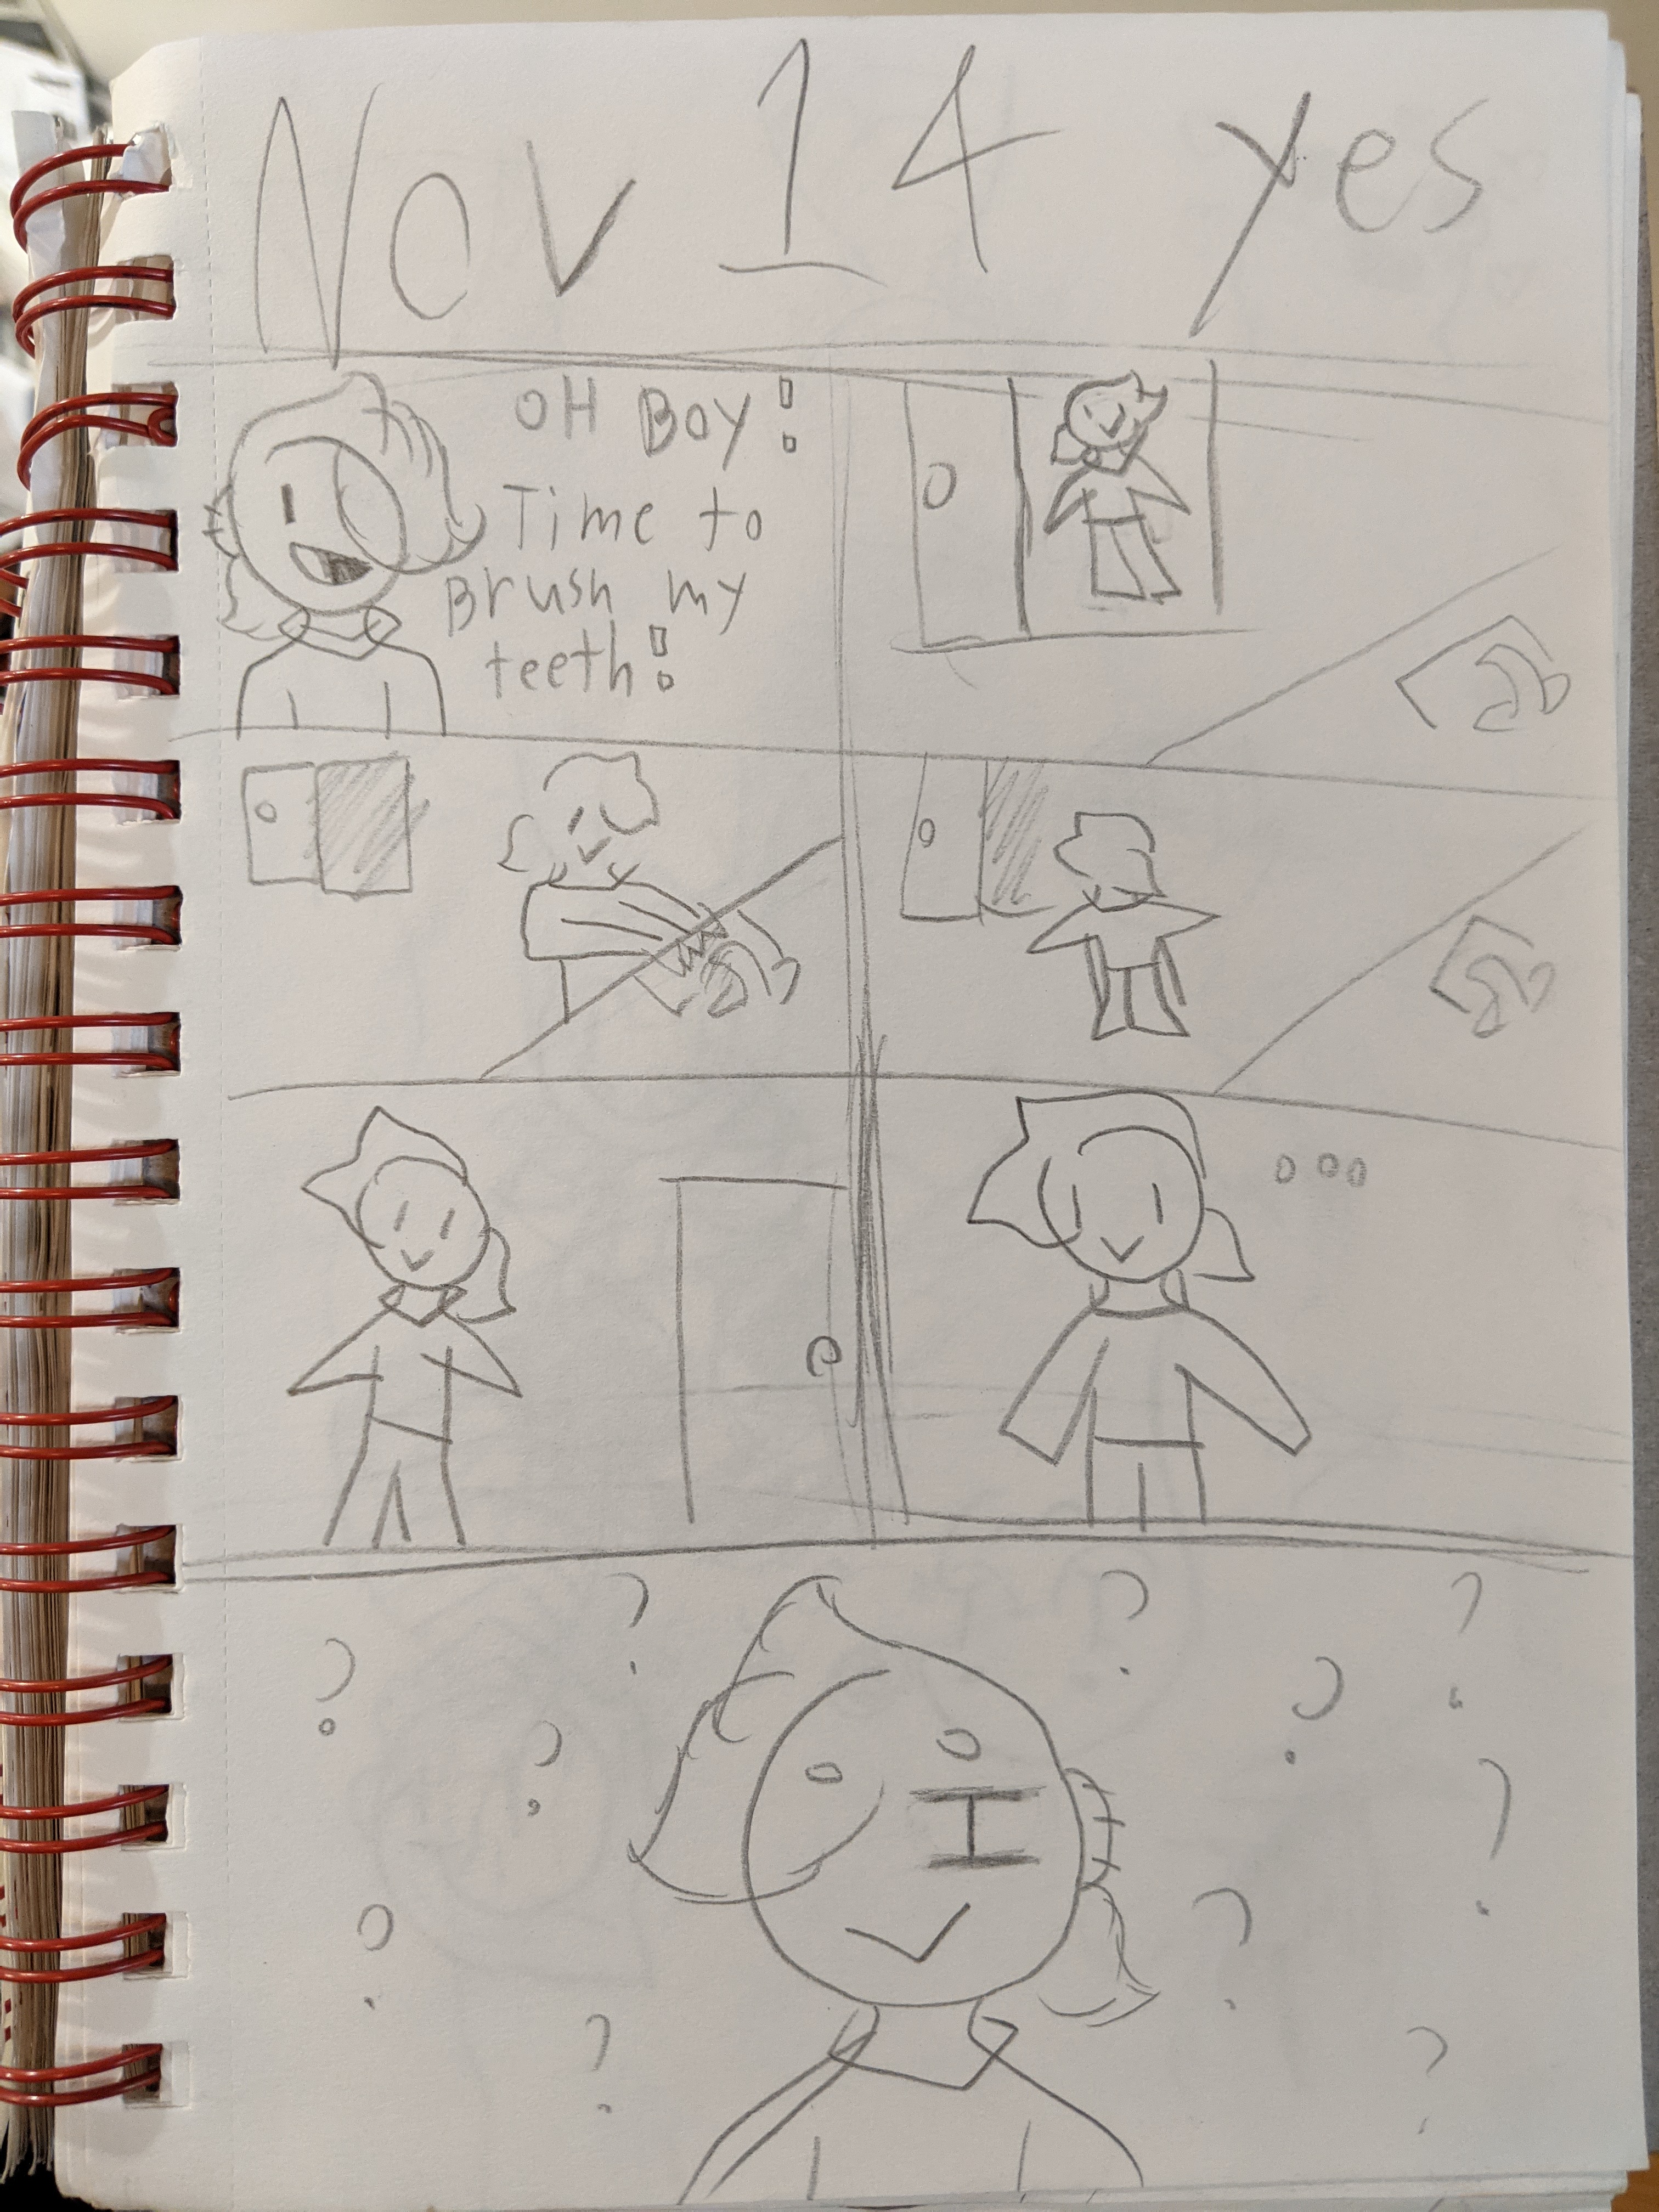 Nov 14 yes
OH Boy!
Time to
Brush my
teeth!
...
? ? ? ?
? ?
? ?
? ?
? ?